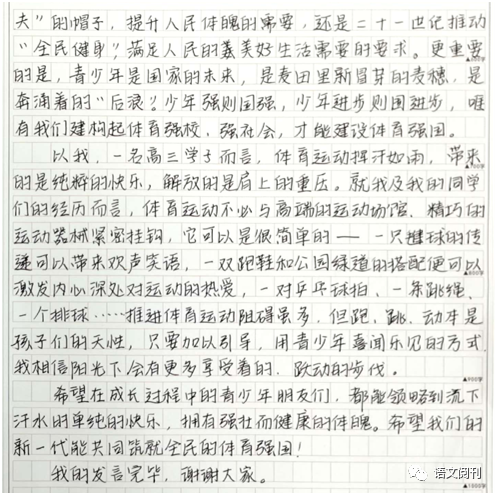 夫”的帽子，提升人民体魄的需要，还是二十一世纪推动
“全民健身”，满足人民的美好生活需要的要求。更重要
的是，青少年是国家的未来，是麦田里新冒芽的麦穗，是
奔涌着的“后浪”，少年强则国强，少年进步则国进步，唯
有我们建构起体育强校、强社会，才能建设体育强国。
以我，一名高三学子而言，体育运动挥汗如雨，带来
的是纯粹的快乐，解放的是肩上的重压。就我及我的同学
们的经历而言，体育运动不必与高端的运动场馆、精巧的
运动器械紧密挂钩，它可以是很简单的——一只毽球的传
递可以带来欢声笑语，一双跑鞋和公园绿道的搭配便可以
激发内心深处对运动的热爱，一对乒乓球拍、一条跳绳、
一个排球……推进体育运动阻碍虽多，但跑、跳、动本是
孩子们的天性，只要加以引导，用青少年喜闻乐见的方式，
我相信阳光下会有更多享受着的、跃动的步伐。
希望在成长过程中的青少年朋友们，都能领略到流下
汗水的单纯的快乐，拥有强壮而健康的体魄。希望我们的
新一代能共同筑就全民的体育强国！
我的发言完毕，谢谢大家。
▲900字
▲1000字
语文阅刊